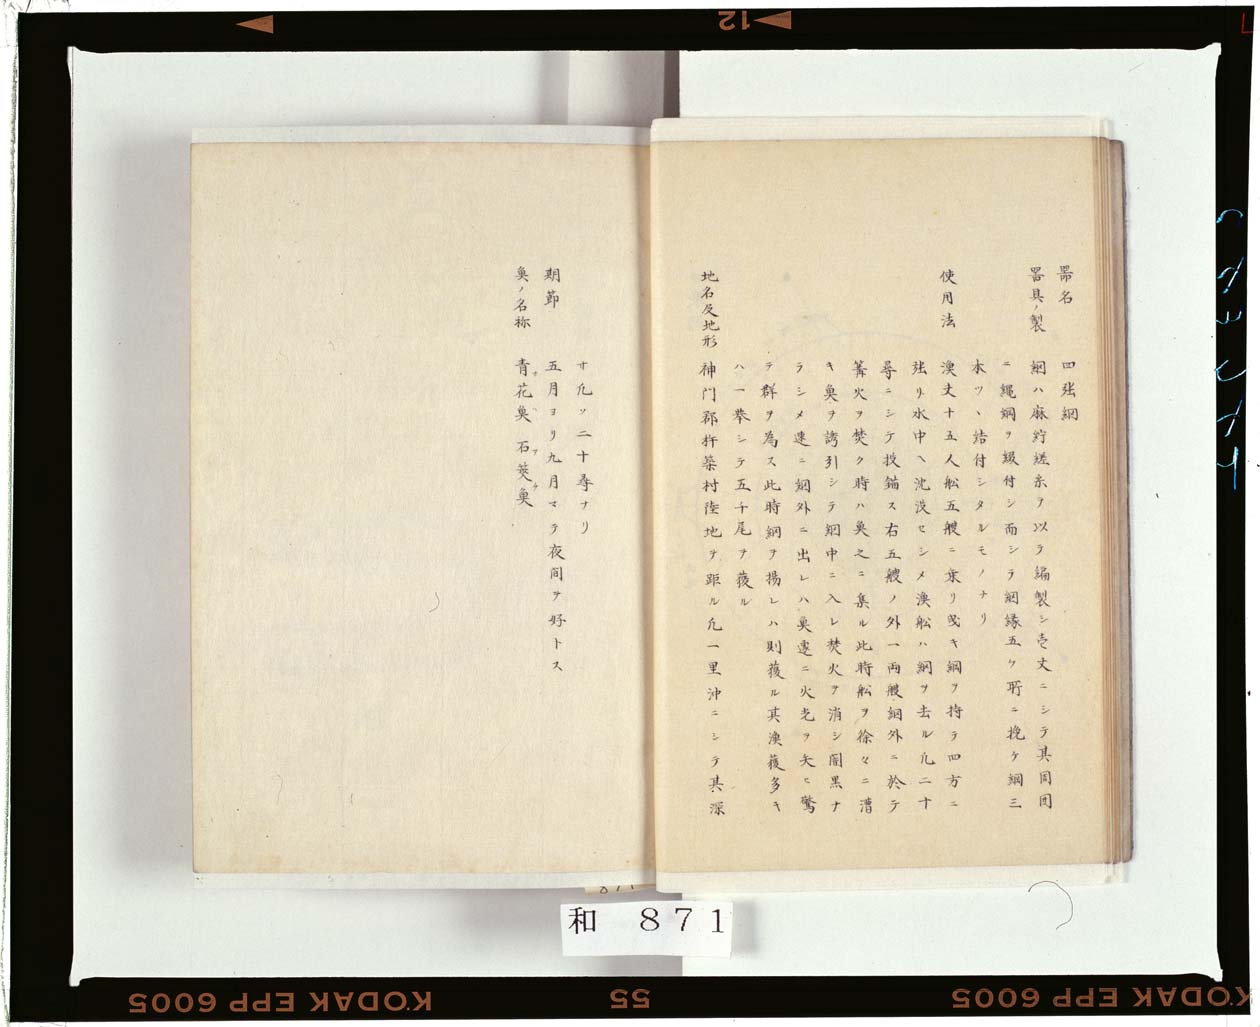 罟名 四張網
器具ノ製 網ハ麻紵縒糸ヲ以テ編製シ壱丈ニシテ其周囲
ニ縄綱ヲ綴付シ而シテ網縁五ケ所ニ挽ケ綱三
本ツヽ結付シタルモノナリ
使用法 漁丈十五人舩五艘ニ乗リ曳キ綱ヲ持テ四方ニ
張リ水中ヘ沈没セシメ漁舩ハ網ヲ去ル凢二十
尋ニシテ投錨ス右五艘ノ外一両艘網外ニ於テ
篝火ヲ焚ク時ハ奥之ニ集ル此時舩ヲ徐々ニ漕
キ奥ヲ誘引シテ網中ニ入レ焚火ヲ消シ闇黒ナ
ラシメ速ニ網外ニ出レハ奥遽ニ火光ヲ矢ヒ驚
テ群ヲ為ス此時網ヲ揚レハ則獲ル其漁獲多キ
ハ一挙シテ五千尾ヲ獲ル
地名及地形 神门郡杵築村陸地ヲ距ル凢一里沖ニシテ其深
サ凢ソ二十尋ナリ
期節 五月ヨリ九月マテ夜间ヲ好トス
奥ノ名称 青花奥 石䇲奥
和 871
12
KODAK EPP 6005
55
KODAK EPP 6005